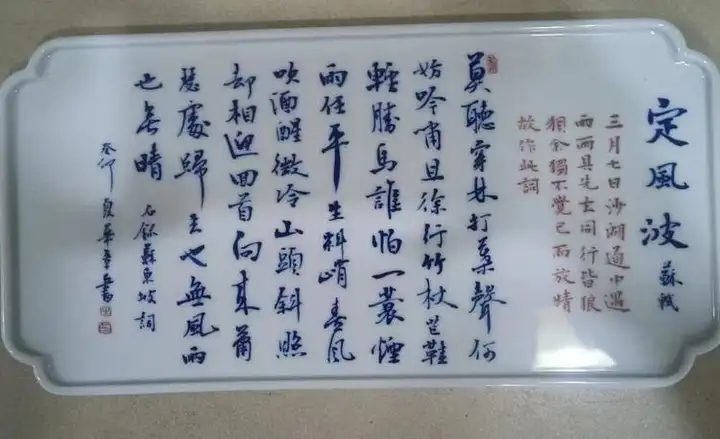 定風波 蘇軾
三月七日沙湖道中遇
雨雨具先去同行皆狼
狽余獨不覺已而放晴
故作此詞
莫聽穿林打葉聲何
妨吟嘯且徐行竹杖芒鞋
輕勝馬誰怕一蓑煙
雨任平生料峭春風
吹酒醒微冷山頭斜照
却相迎回首向來蕭
瑟處歸去也無風雨
也無晴 右錄蘇東坡詞
癸卯夏華書